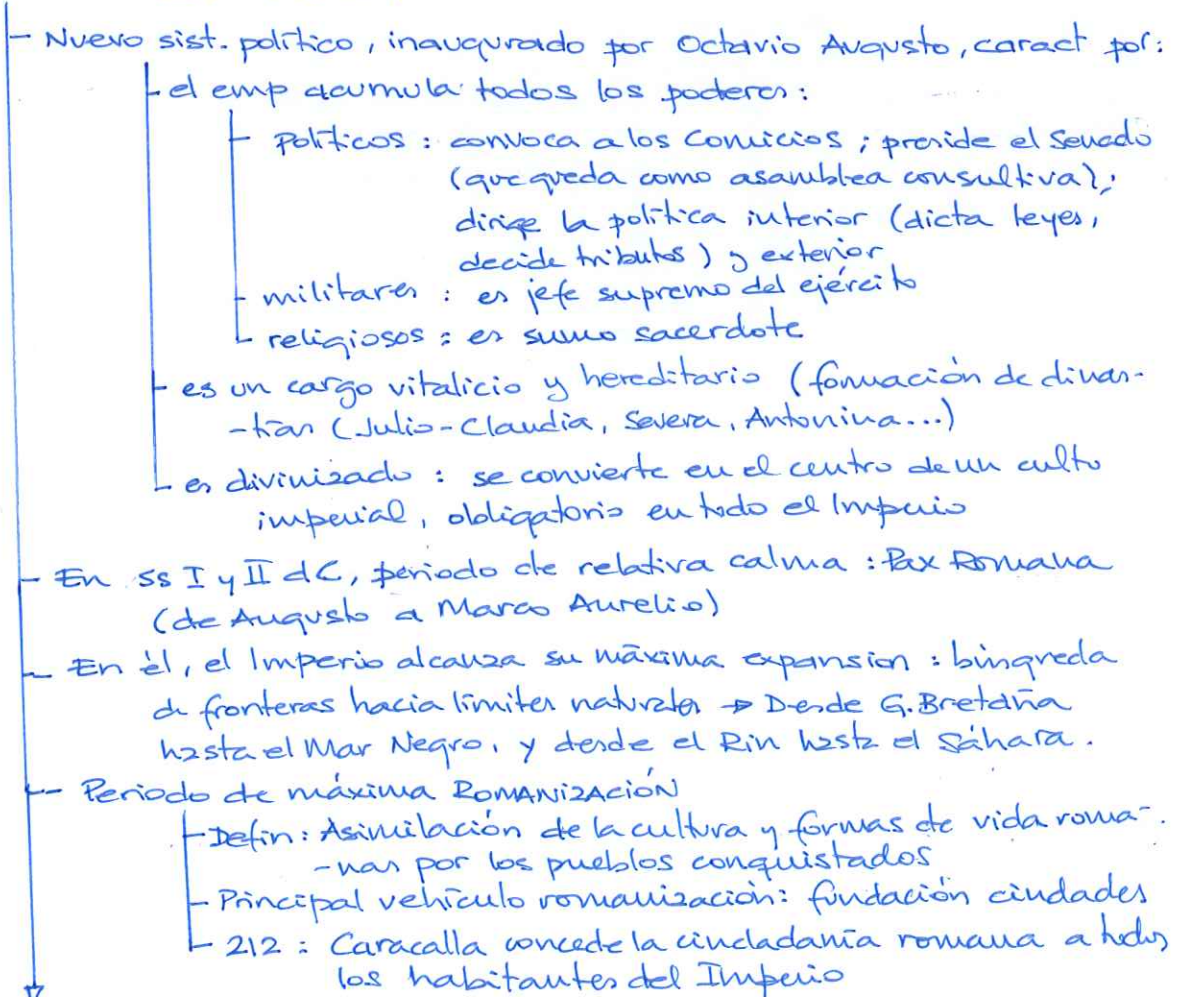 - Nuevo sist. político, inaugurado por Octavio Augusto, caract por:
- el emp acumula todos los poderes:
- Políticos: convoca a los Comicios; preside el Senado
(que queda como asamblea consultiva);
dirige la política interior (dicta leyes,
decide tributos) y exterior
- militares: es jefe supremo del ejército
- religiosos: es sumo sacerdote
- es un cargo vitalicio y hereditario (formación de dinas-
-tías (Julio-Claudia, Severa, Antonina...)
- es divinizado: se convierte en el centro de un culto
imperial, obligatorio en todo el Imperio
- En ss I y II dC, periodo de relativa calma: Pax Romana
(de Augusto a Marco Aurelio)
- En él, el Imperio alcanza su máxima expansión: búsqueda
de fronteras hacia límites naturales → Desde G. Bretaña
hasta el Mar Negro, y desde el Rin hasta el Sáhara.
- Periodo de máxima ROMANIZACIÓN
- Defin: Asimilación de la cultura y formas de vida roma-
-nas por los pueblos conquistados
- Principal vehículo romanización: fundación ciudades
- 212: Caracalla concede la ciudadanía romana a todos
los habitantes del Imperio